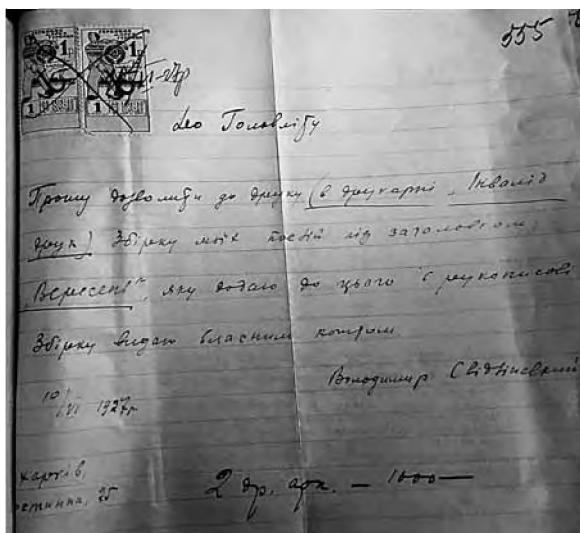 555
До Головліту
Прошу дозволити до друку (в друкарні „Інвалід
друк") Збірку моїх поезій під заголовком:
„Вересень", яку додаю до цього в рукописові
Збірку видаю власним коштом.
Володимир Свідзінський
10/VI 1927р.
Харків,
25
2 др. арк. — 1000 —